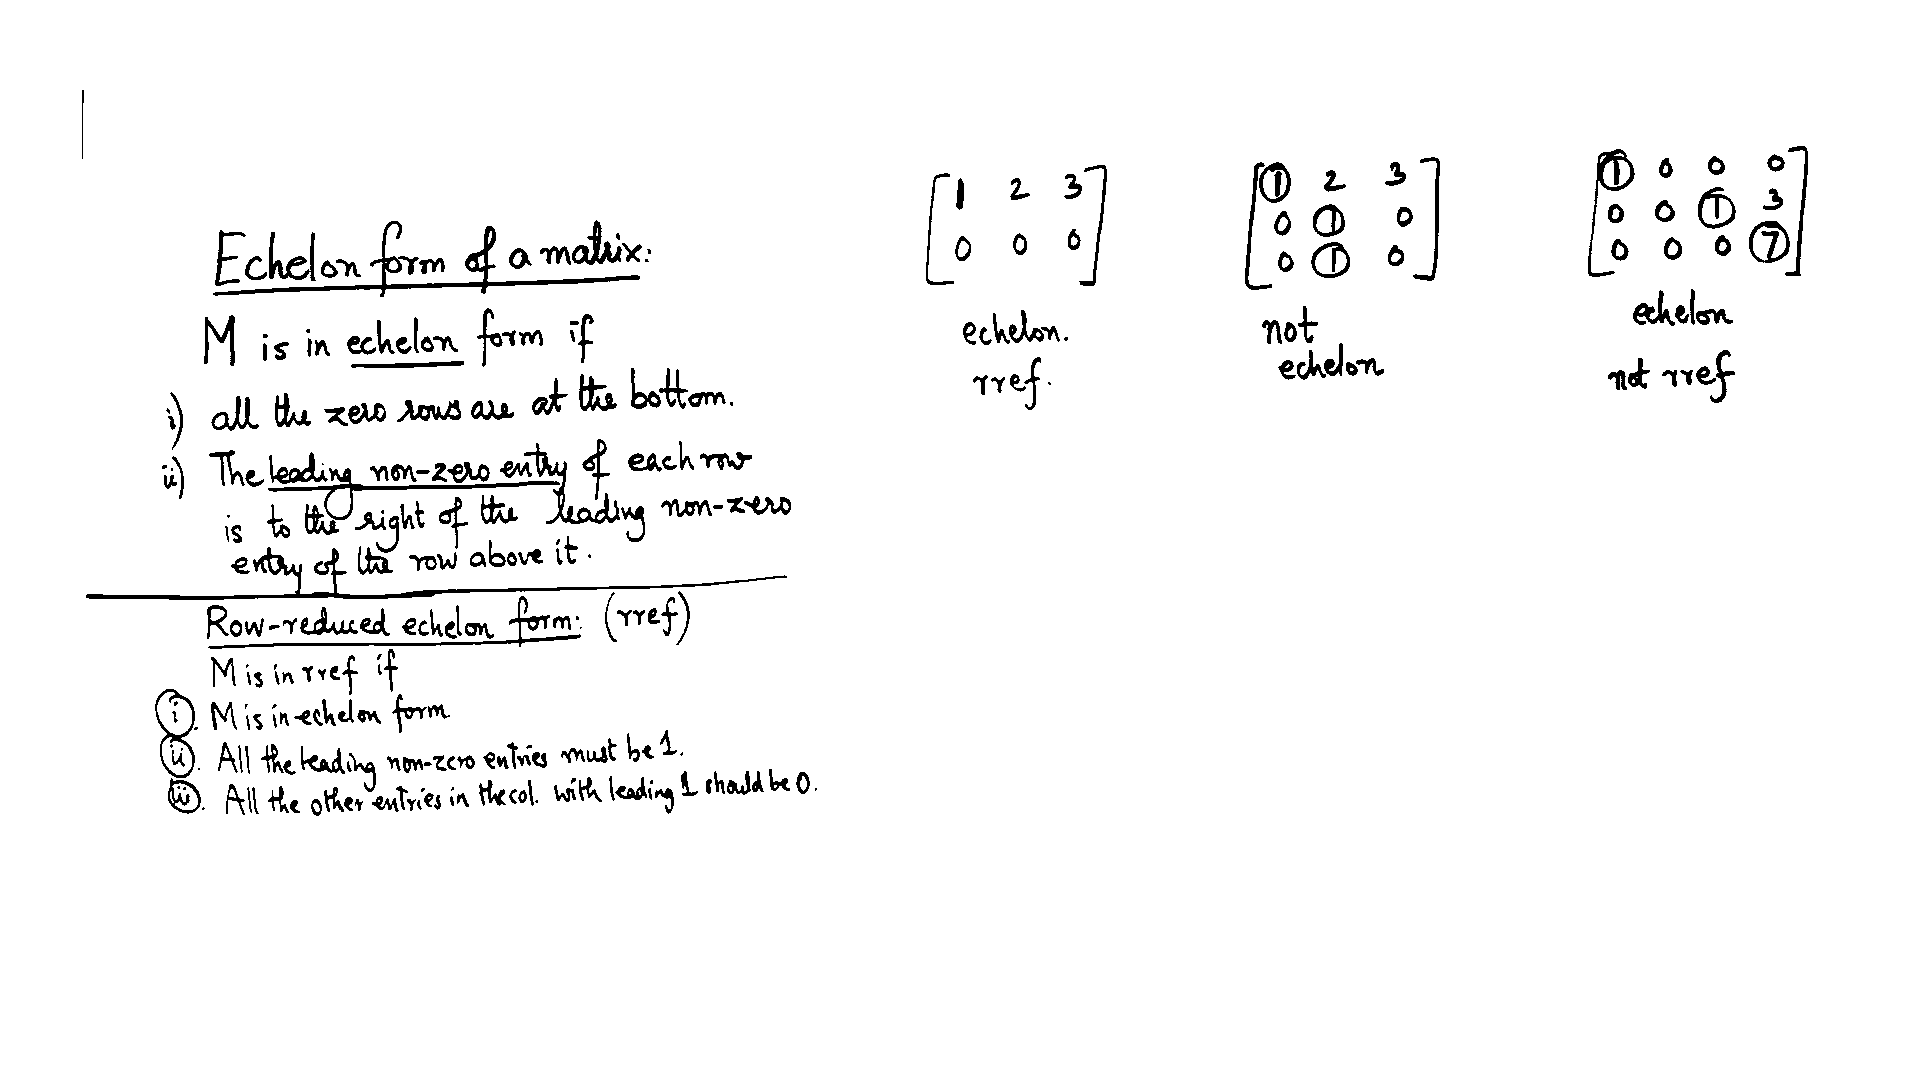 Echelon form of a matrix:
M is in echelon form if
i) all the zero rows are at the bottom.
ii) The leading non-zero entry of each row
is to the right of the leading non-zero
entry of the row above it.
Row-reduced echelon form: (rref)
M is in rref if
i. M is in echelon form
ii. All the leading non-zero entries must be 1.
iii. All the other entries in the col. with leading 1 should be 0.
1 2 3
0 0 0
echelon.
rref.
1 2 3
0 1 0
0 1 0
not
echelon
1 0 0 0
0 0 1 3
0 0 0 7
echelon
not rref